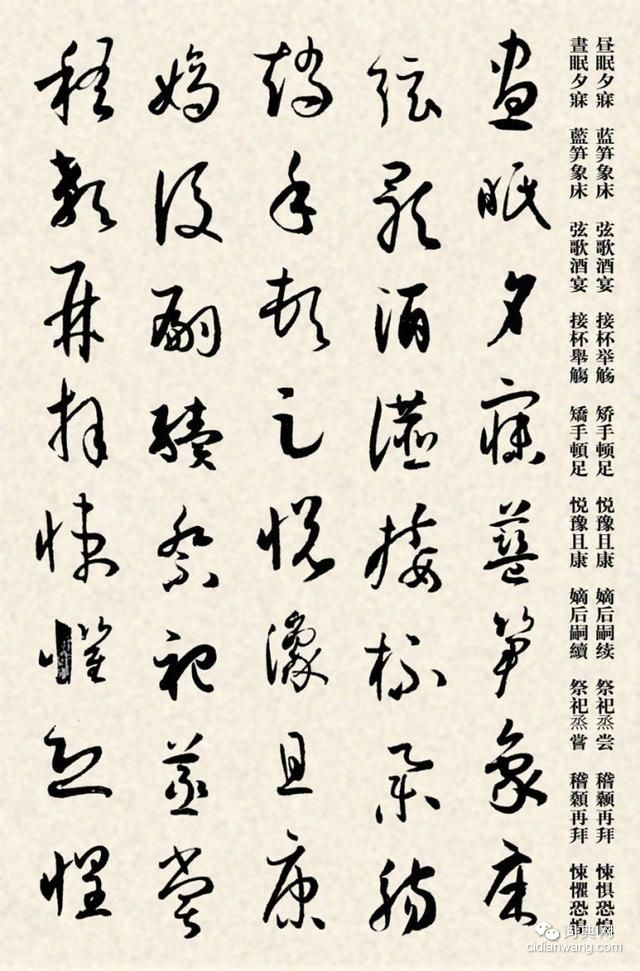 昼眠夕寐 蓝笋象床 弦歌酒宴 接杯举觞 矫手顿足 悦豫且康 嫡后嗣续 祭祀烝尝 稽颡再拜 悚惧恐惶
晝眠夕寐 藍笋象床 弦歌酒宴 接杯舉觴 矯手頓足 悦豫且康 嫡后嗣續 祭祀烝嘗 稽顙再拜 悚懼恐惶
晝眠夕寐藍笋象床
弦歌酒讌接杯舉觴
矯手頓足悦豫且康
嫡後嗣續祭祀蒸嘗
稽顙再拜悚懼恐惶
词典网
cidianwang.com